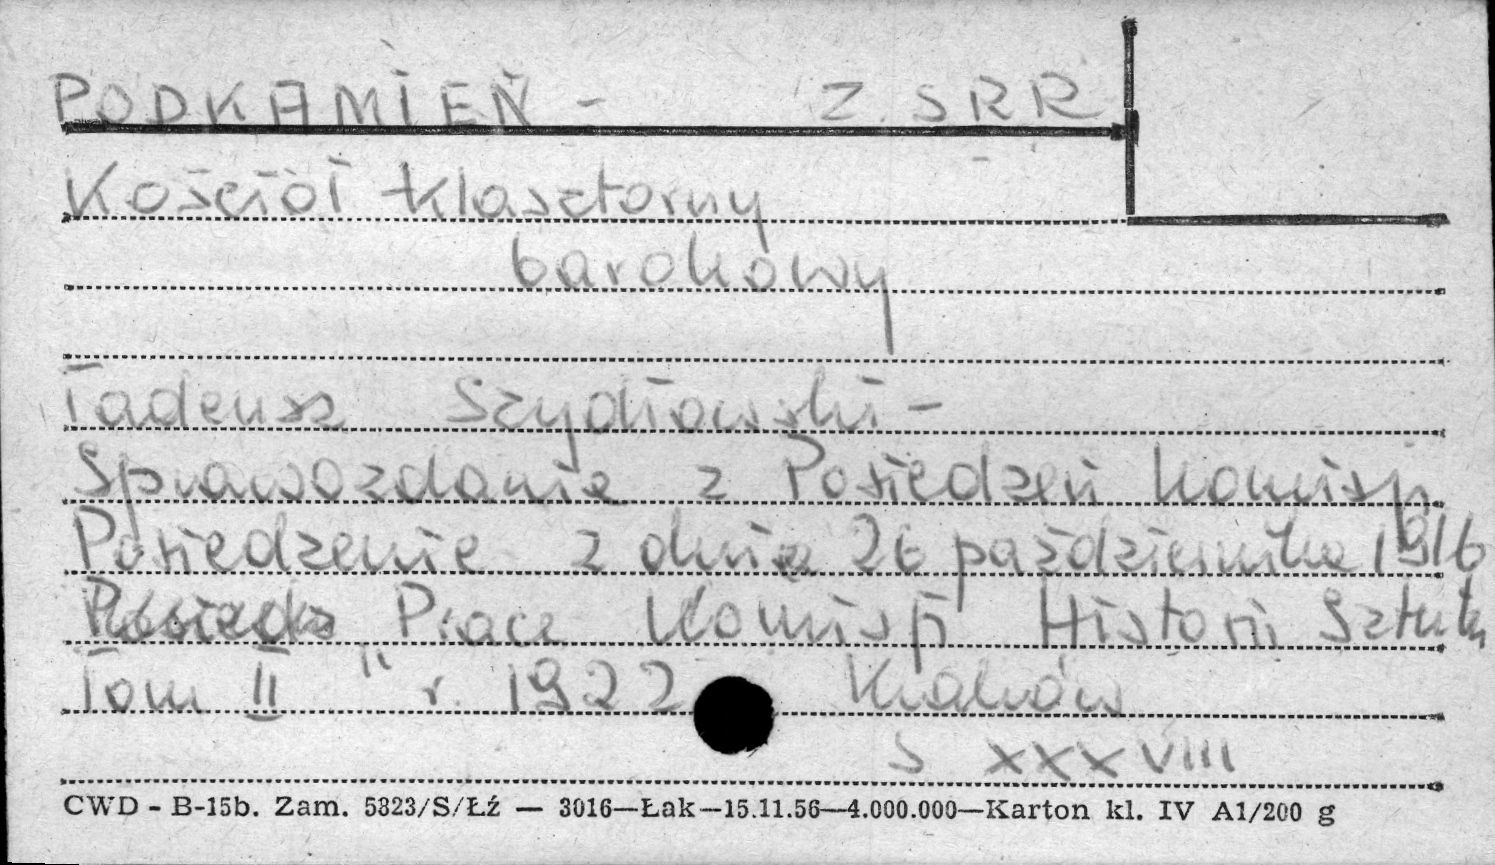 PODKAMIEŃ - Z.SRR
Kościół klasztorny
barokowy
Tadeusz Szydłowski -
Sprawozdanie z Posiedzeń Komisji
Posiedzenie z dnia 26 października 1916
Prace Komisji Historii Sztuki
Tom II " r. 1922 Kraków
S XXXVIII
CWD - B-15b. Zam. 5323/S/Łź — 3016—Łak—15.11.56—4.000.000—Karton kl. IV A1/200 g